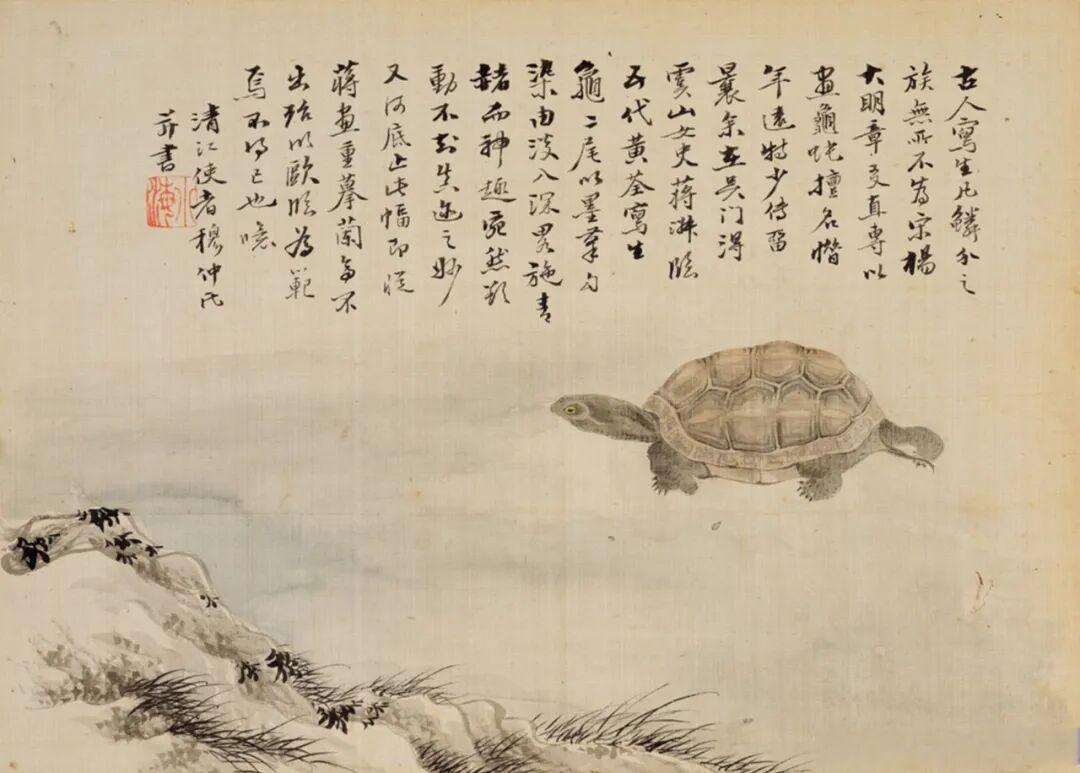 古人寫生凡鱗介之
族無所不為宋楊
大明章友直專以
畫龜蛇擅名惜
年遠特少傳留
曩余在吳門得
雲山女史蔣淑臨
五代黃荃寫生
龜二尾以墨筆勾
染由淡入深略施青
赭而神趣宛然頗
動不刻失迹之妙
又何底止此幅即從
蔣畫重摹蘭亭不
出殆以歐臨為範
焉不得已也噫
清江使者穆仲氏
并書